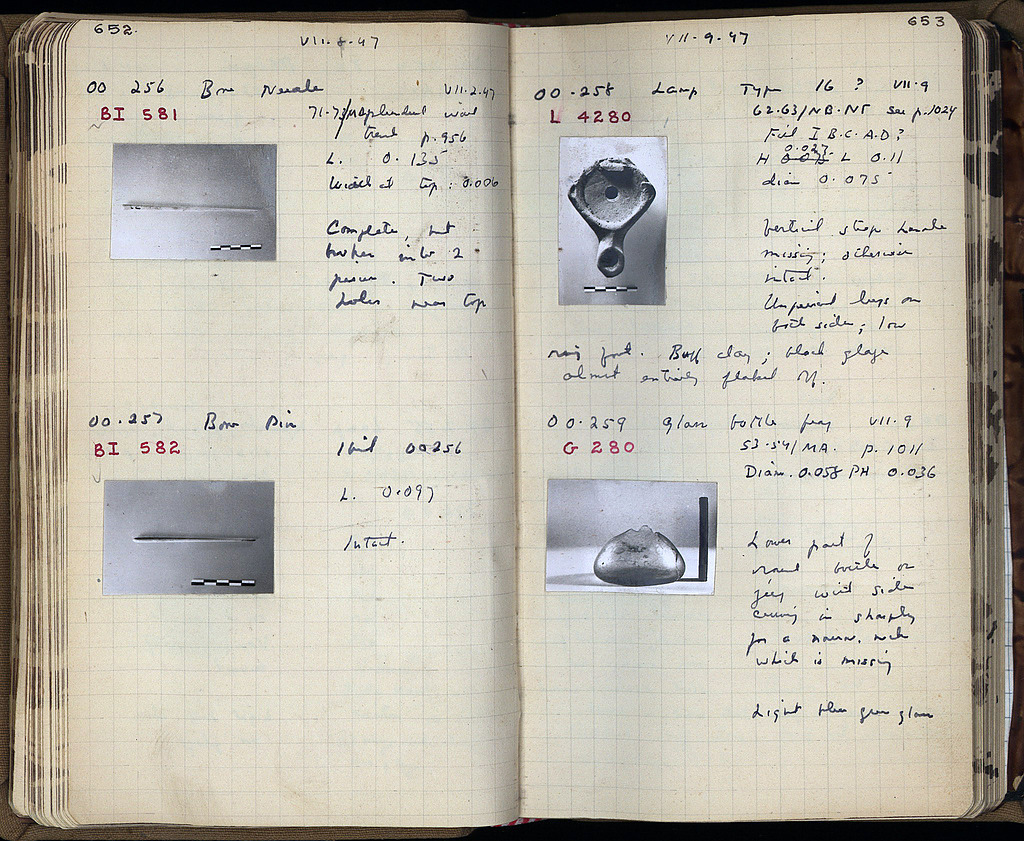 652.
VII-8-47
00 256 Bone Needle VII.2.47
BI 581
p. 956
L. 0.135
Width at top: 0.006
Complete, but
broken into 2
pieces. Two
holes near top
00.257 Bone Pin
BI 582
Ibid 00256
L. 0.097
Intact.
653
VII-9-47
00.258 Lamp Type 16 ? VII.9
L 4280
62.63/NB-NΓ see p. 1024
Fill I B.C. A.D?
0.027
H L 0.11
diam 0.075
Vertical strap handle
missing; otherwise
intact.
Unpierced lugs on
both sides; low
ring foot. Buff clay; black glaze
almost entirely flaked off.
00.259 Glass bottle frag VII.9
G 280
53-54/MA. p. 1011
Diam. 0.058 PH 0.036
Lower part of
round bottle or
jug with sides
curving in sharply
for a narrow neck
which is missing
Light blue green glass